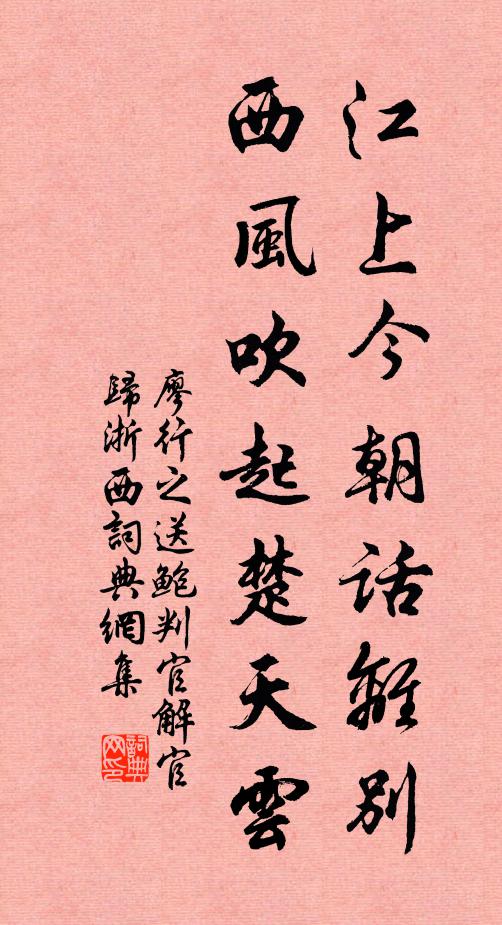 江上今朝話離別
西風吹起楚天雲
廖行之送鮑判官解官
歸浙西詞典網集
詞典
网印